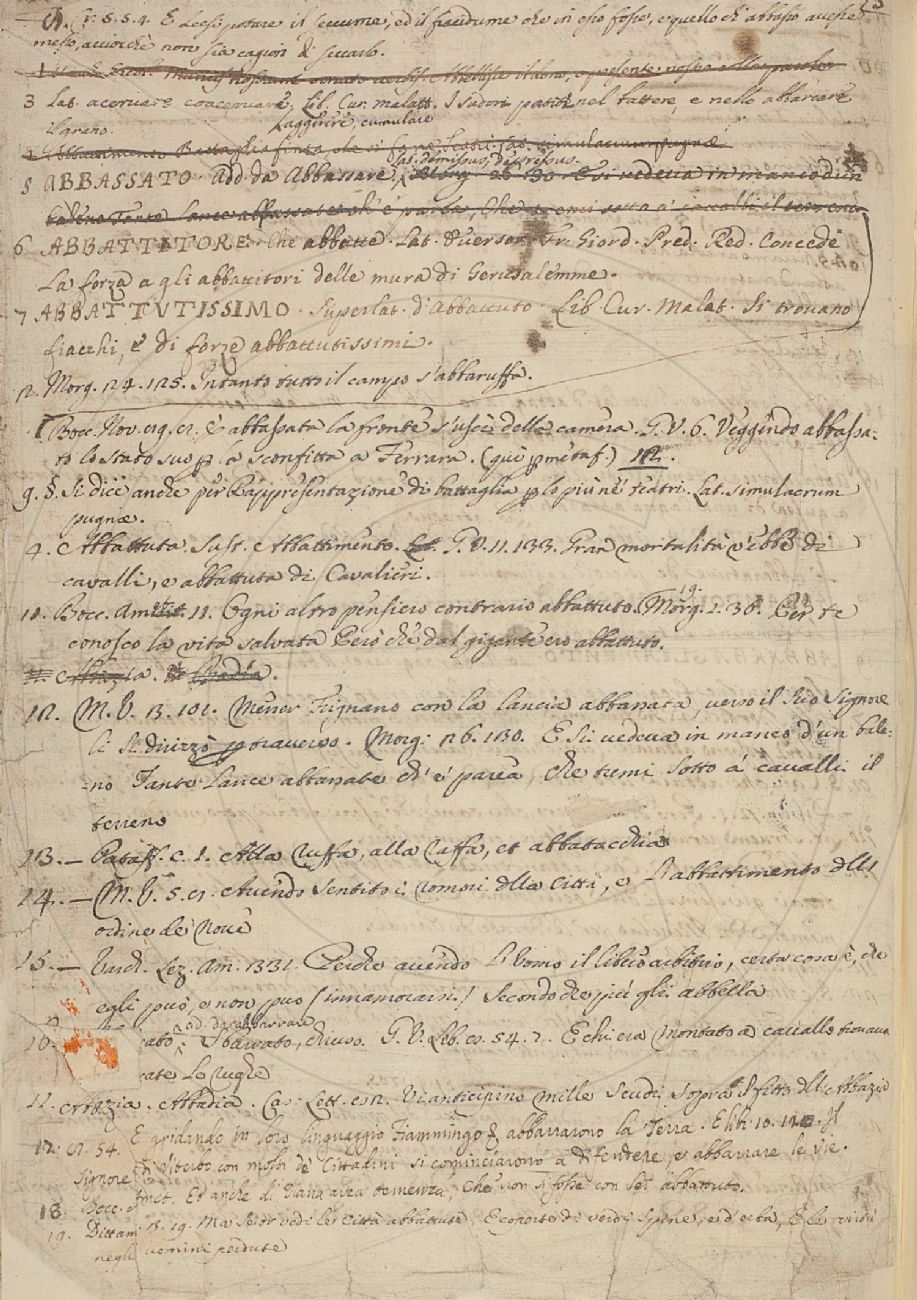 Cr. 5. 5. 4. E deesi potare il seccume, ed il fracidume che in esso fosse, e quello ch'abbasso avesse
messo, acciocchè non sia cagion di seccarlo.
3 Lat. acervare coacervare. Lib. Cur. malatt. I sudori patiti nel battere, e nello abbarcare
il grano.
aggerere, cumulare
Lat. demissus, depressus.
5 ABBASSATO. Add. da Abbassare, Morg. 26. 130. E si vedeva in manco d'un
baleno Tante lance abbassate ch'è parea, Che tremi sotto a' cavalli il terreno
6 ABBATTITORE. Che abbatte. Lat. Eversor. Fr. Giord. Pred. Red. Concede
La forza a gli abbattitori delle mura di Gerusalemme.
7 ABBATTVTISSIMO. Superlat. d'Abbattuto. Lib. Cur. Malat. Si trovano
fiacchi, e di forze abbattutissimi.
2. Morg. 24. 125. Intanto tutto il campo s'abbaruffa.
Bocc. Nov. è abbassata la fronte s'uscì della camera. G. V. 6. Veggendo abbassa:
to lo stato suo p la sconfitta a Ferrara. (qui p metaf.) 12.
9. §. Si dice anche per Rappresentazione di battaglia p lo più ne' teatri. Lat. simulacrum
pugnæ.
4. Abbattuta. Sust. Abbattimento. G. V. 11. 133. Gran mortalità v'ebbe di
cavalli, e abbattuta di Cavalieri.
11. Bocc. Amet. 11. Ogni altro pensiero contrario abbattuto. Morg. 19. 2. 36. Per te
conosco la vita salvata Però che dal gigante ero abbattuto.
12. M. V. 3. 101. Messer Frignano con la lancia abbassata, verso il suo Signore
si dirizzò p traverso. Morg. 26. 130. E si vedeva in manco d'un bale:
no Tante Lance abbassate ch'è parea, che tremi sotto á cavalli il
terreno
13. — Pataff. c. 1. Alla ruffa, alla raffa, et abbatacchia
14. — M. V. 5. Avendo sentito i romori della Città, e l'abbattimento dell
ordine de' Nove
15. — Varch. Lez. Am. 331. Perche avendo l'Uomo il libero arbitrio, certa cosa è, che
egli può, e non può (innamorarsi) secondo che più gli abbella
ad. da abbarrare
16. cato. Sbarrato, chiuso. G. V. Lib. 54. 2. E chi era montato a cavallo trovava
cate le rughe
Abbazia. Abbadia. Cas. Lett. Vi anticipino mille scudi sopra il fitto dell Abbazia
54. E gridando in loro linguaggio Fiammingo abbarrarono la Terra. E lib. 10. Il
Signore di Viterbo con molti de' Cittadini si cominciarono a difendere, e abbarrare le vie.
18. Bocc. Ed anche di Diana avea temenza, che non si fosse con lei abbattuto.
19. Dittam. 19. Ma se or vedi le Città abbattute, E coperte di verdi spine, ed erba, E la virtù
negli uomini perduta